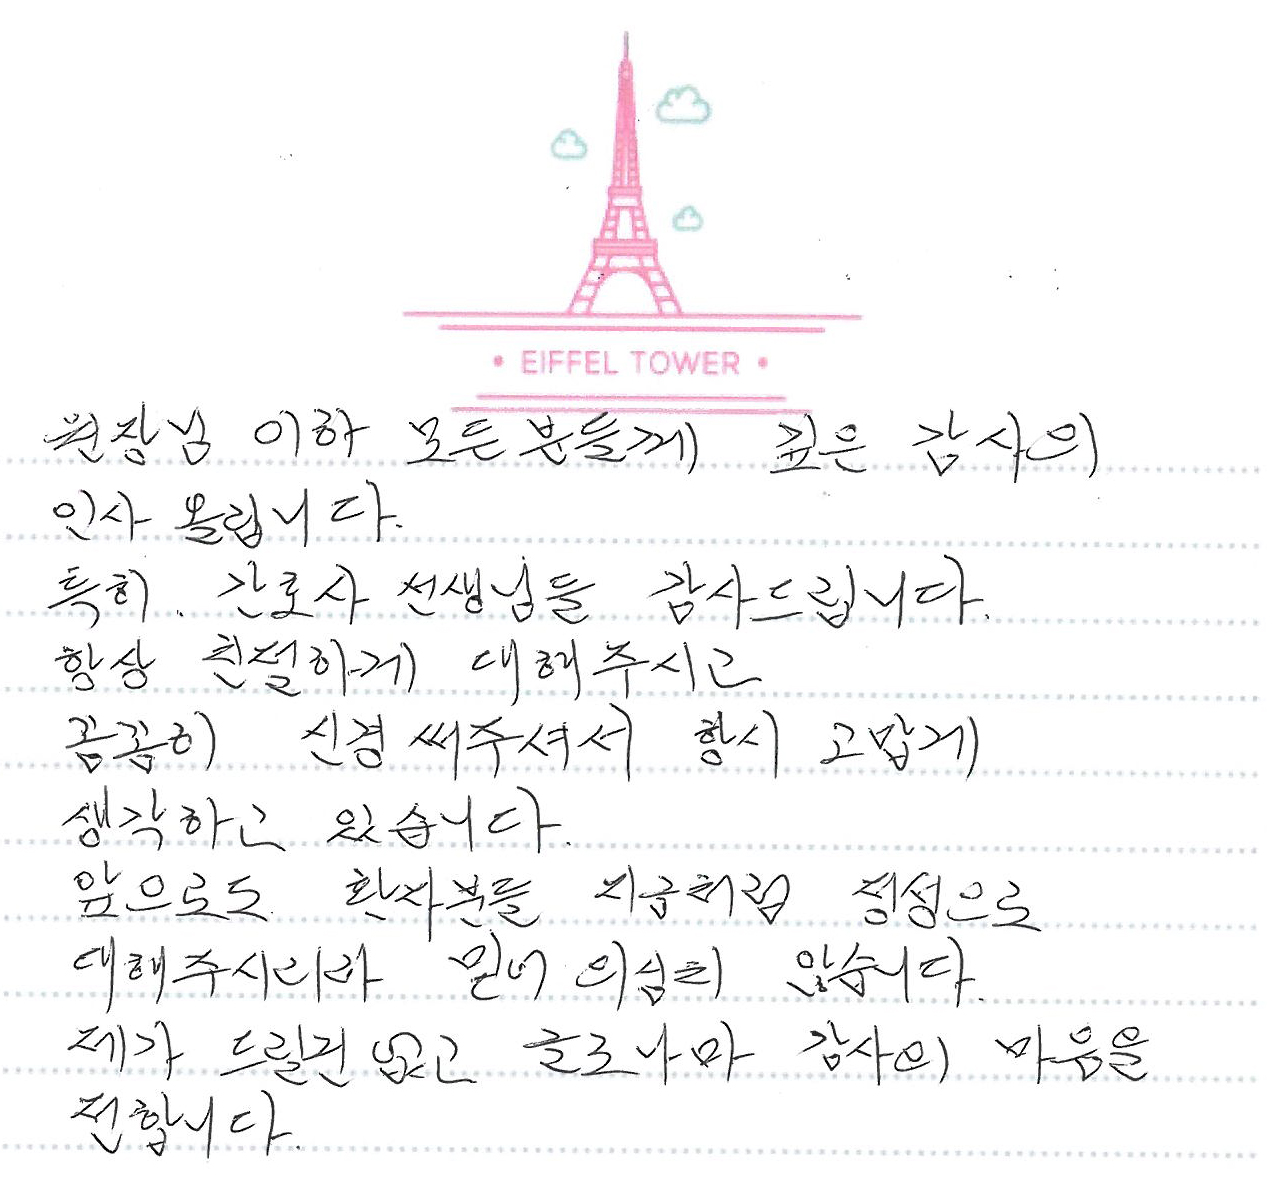 • EIFFEL TOWER •
원장님 이하 모든분들께 깊은 감사의
인사 올립니다.
특히. 간호사 선생님들 감사드립니다.
항상 친절하게 대해주시고
꼼꼼히 신경써주셔서 항시 고맙게
생각하고 있습니다.
앞으로도 환자분들 지금처럼 정성으로
대해주시리라 믿어 의심치 않습니다.
제가 드릴건 없고 글로나마 감사의 마음을
전합니다.